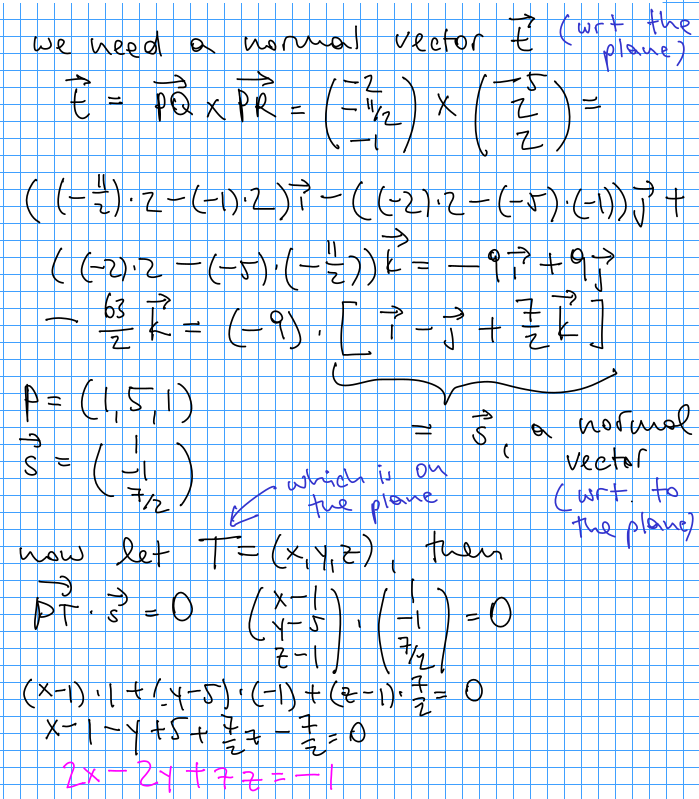 we need a normal vector t⃗ (wrt the plane)
t⃗ = PQ⃗ × PR⃗ = (-2, -11/2, -1) × (-5, 2, 2) =
((-11/2)·2-(-1)·2)i⃗ - ((-2)·2-(-5)·(-1))j⃗ +
((-2)·2-(-5)·(-11/2))k⃗ = -9i⃗ + 9j⃗
- 63/2 k⃗ = (-9)·[i⃗ - j⃗ + 7/2 k⃗]
= s⃗, a normal vector (wrt. to the plane)
P = (1,5,1)
s⃗ = (1, -1, 7/2)
which is on the plane
now let T = (x,y,z), then
PT⃗ · s⃗ = 0 (x-1, y-5, z-1) · (1, -1, 7/2) = 0
(x-1)·1+(y-5)·(-1)+(z-1)·7/2 = 0
x-1-y+5+7/2z-7/2=0
2x-2y+7z=-1